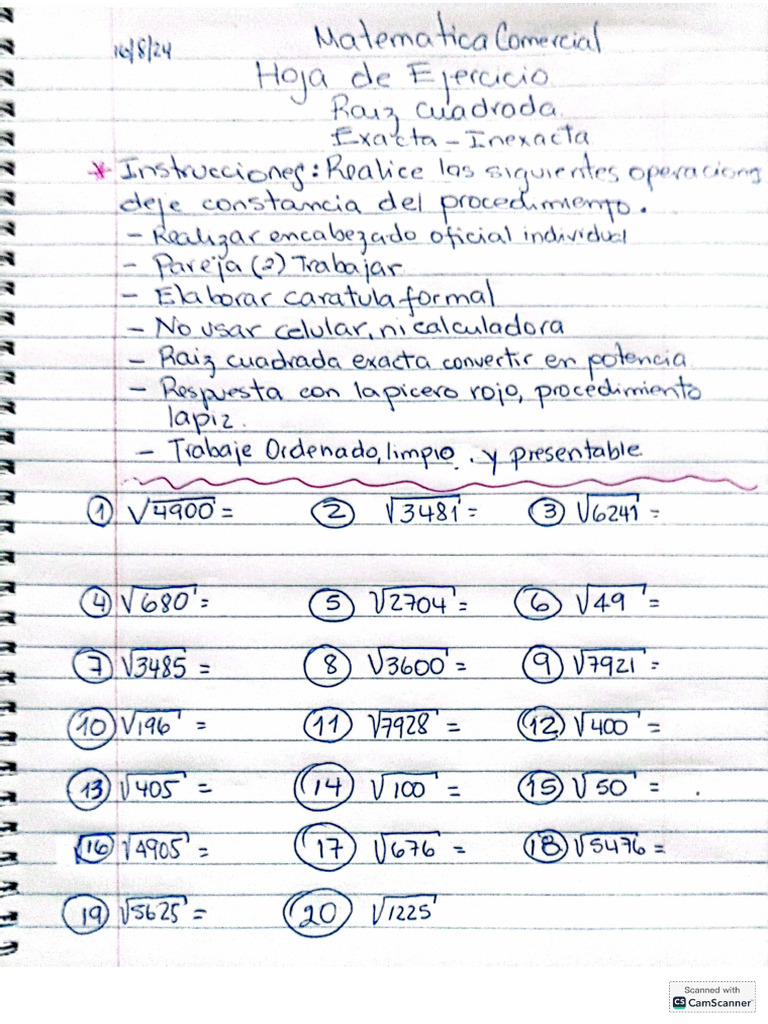 16/8/24 Matematica Comercial
Hoja de Ejercicio
Raiz cuadrada
Exacta - Inexacta
* Instrucciones: Realice las siguientes operaciones
deje constancia del procedimiento.
- Realizar encabezado oficial individual
- Pareja (2) Trabajar
- Elaborar caratula formal
- No usar celular, ni calculadora
- Raiz cuadrada exacta convertir en potencia
- Respuesta con lapicero rojo, procedimiento
lapiz.
- Trabaje Ordenado, limpio. y presentable
1 √4900 = 2 √3481 = 3 √6241 =
4 √680 = 5 √2704 = 6 √49 =
7 √3485 = 8 √3600 = 9 √7921 =
10 √196 = 11 √7928 = 12 √400 =
13 √405 = 14 √100 = 15 √50 = .
16 √4905 = 17 √676 = 18 √5476 =
19 √5625 = 20 √1225
Scanned with
CS CamScanner